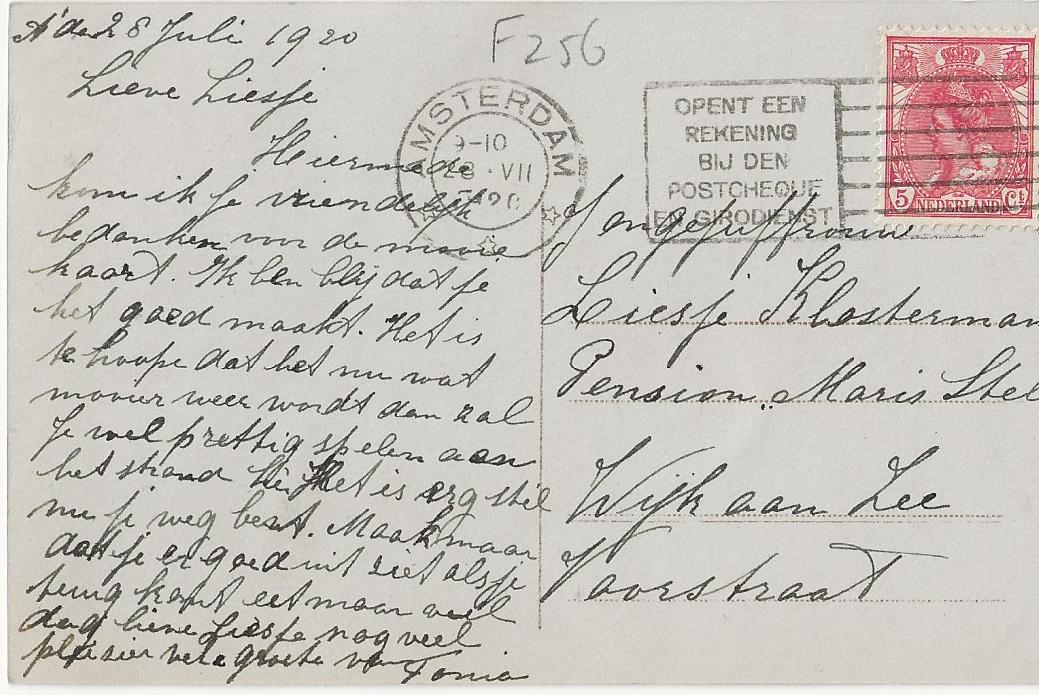 A'dam 28 Juli 1920
F256
Lieve Liesje
Hiermede
kom ik je vriendelijk
bedanken voor de mooie
kaart. Ik ben blij dat je
het goed maakt. Het is
te hoope dat het nu wat
mooier weer wordt dan zal
je wel prettig spelen aan
het strand Het is erg stil
nu je weg bent. Maak maar
dat je er goed uit ziet als je
terug komt eet maar veel
dag lieve Liesje nog veel
plezier vele groete van Tonia
AMSTERDAM
9-10
28 · VII
1920
OPENT EEN
REKENING
BIJ DEN
POSTCHEQUE
EN GIRODIENST
5 NEDERLAND Ct
Jongejuffrouw
Liesje Klosterman
Pension „Maris Stel
Wijk aan Zee
Voorstraat